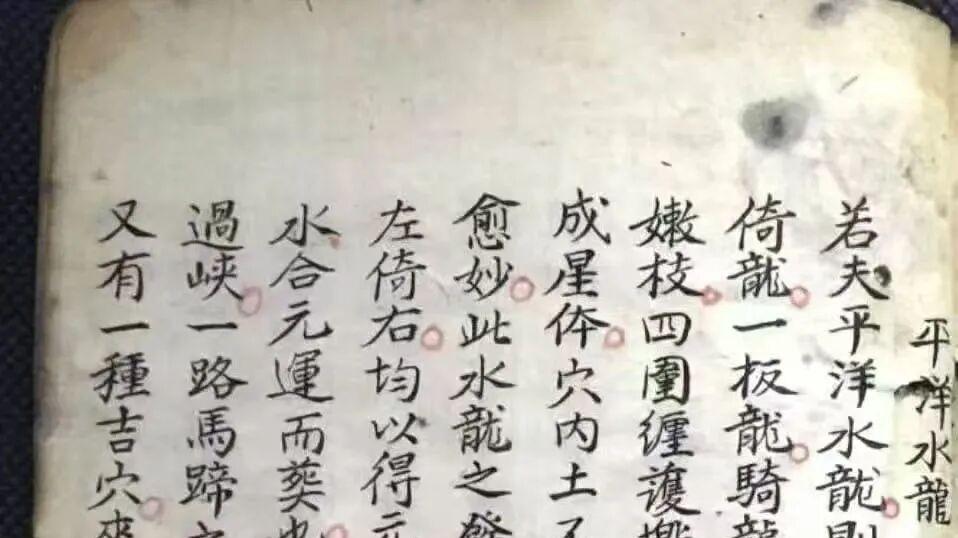 平洋水龍
若夫平洋水龍則
倚龍一板龍騎龍
嫩枝四圍纏護
成星体穴内土不
愈妙此水龍之發
左倚右均以得元
水合元運而葬也
過峽一路馬蹄
又有一種吉穴來